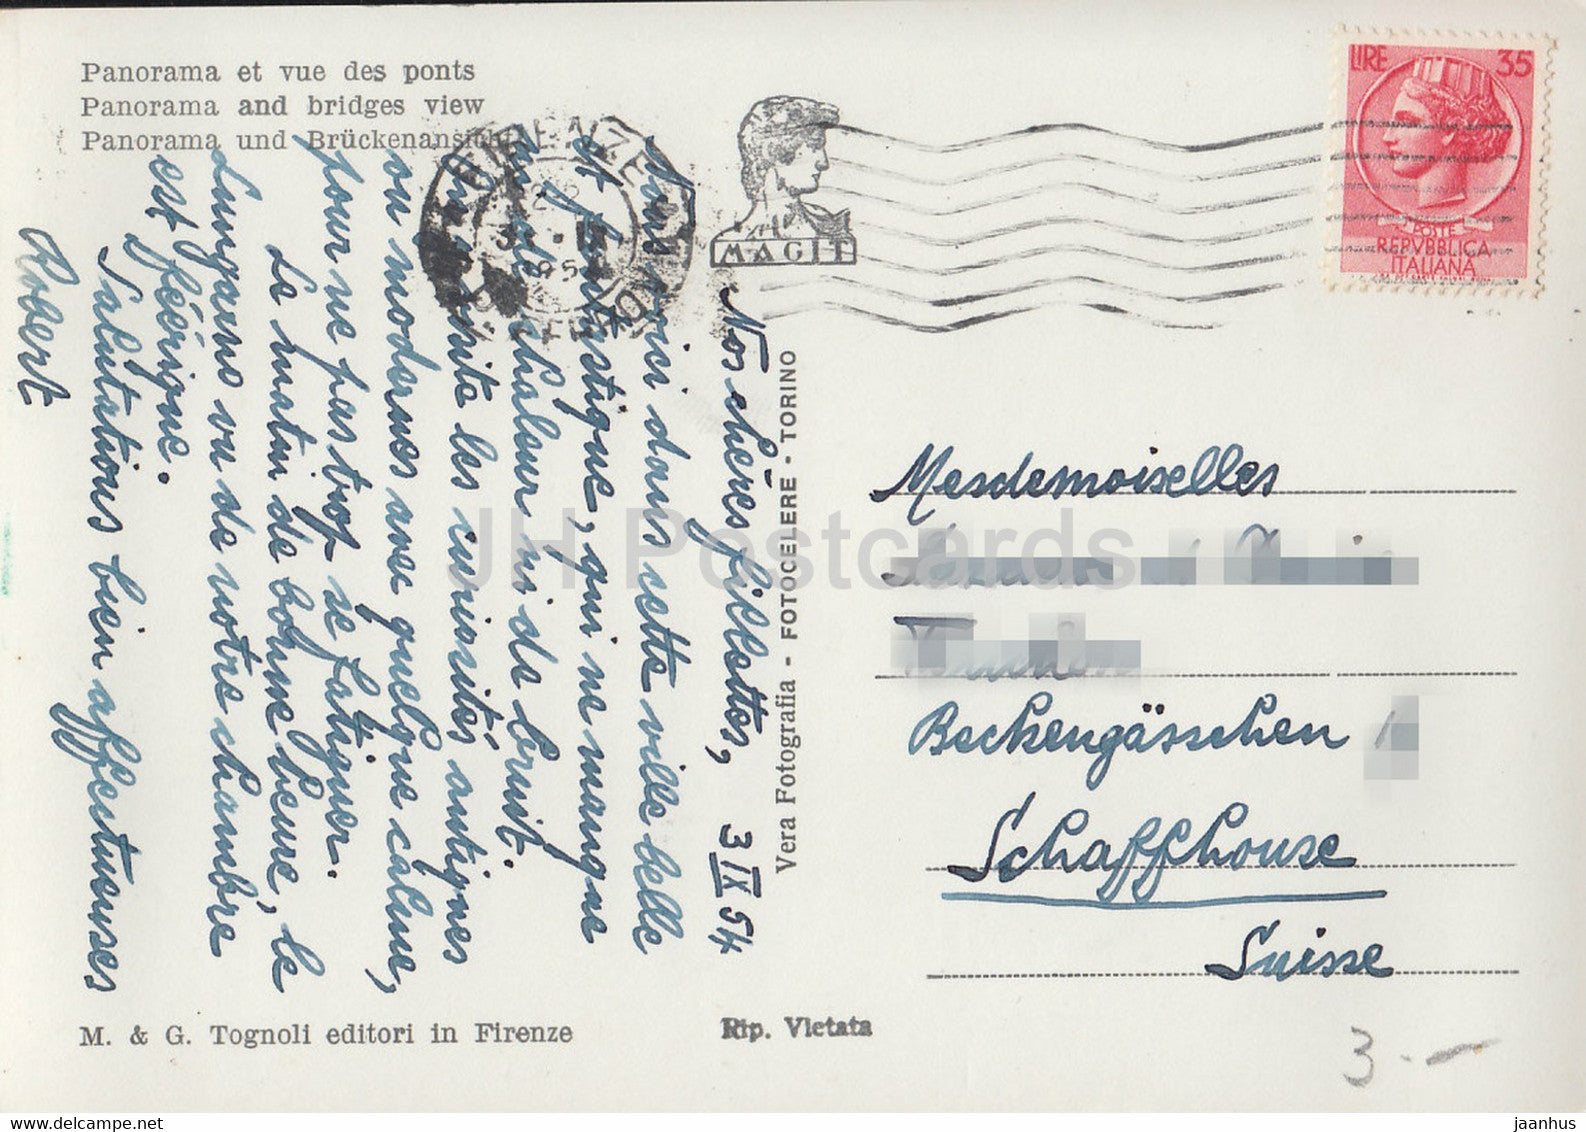 Panorama et vue des ponts
Panorama and bridges view
Panorama und Brückenansicht
FIRENZE
FERROVIA
MAGIT
LIRE 35
POSTE
REPVBBLICA
ITALIANA
Nos chères fillettes, 3 IX 54
Nous voici dans cette ville belle
et fantastique, qui ne manque
ni de chaleur ni de bruit.
On visite les curiosités antiques
ou modernes avec quelque calme,
pour ne pas trop se fatiguer.
Le matin de bonne heure, le
Lungarno vu de notre chambre
est féérique.
Salutations bien affectueuses
Robert
Vera Fotografia - FOTOCELERE - TORINO
Mesdemoiselles
Beckengässchen
Schaffhouse
Suisse
M. & G. Tognoli editori in Firenze
Rip. Vietata
3.-
JH Postcards
https://www.hippostcard.com/store/jaanhus